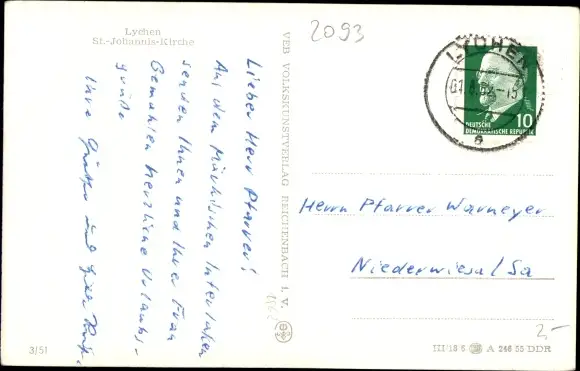 Lychen
St.-Johannis-Kirche
Lieber Herr Pfarrer!
Aus dem Märkischen Interlaken
senden Ihnen und Ihrer Frau
Gemahlin herzliche Urlaubs-
grüße
Ihre und
3/51
VEB VOLKSKUNSTVERLAG REICHENBACH I. V.
2093
LYCHEN
DEUTSCHE
DEMOKRATISCHE REPUBLIK
10
Herrn Pfarrer Warmeyer
Niederwiesa/Sa
2,-
III/18 6 A 246 55 DDR